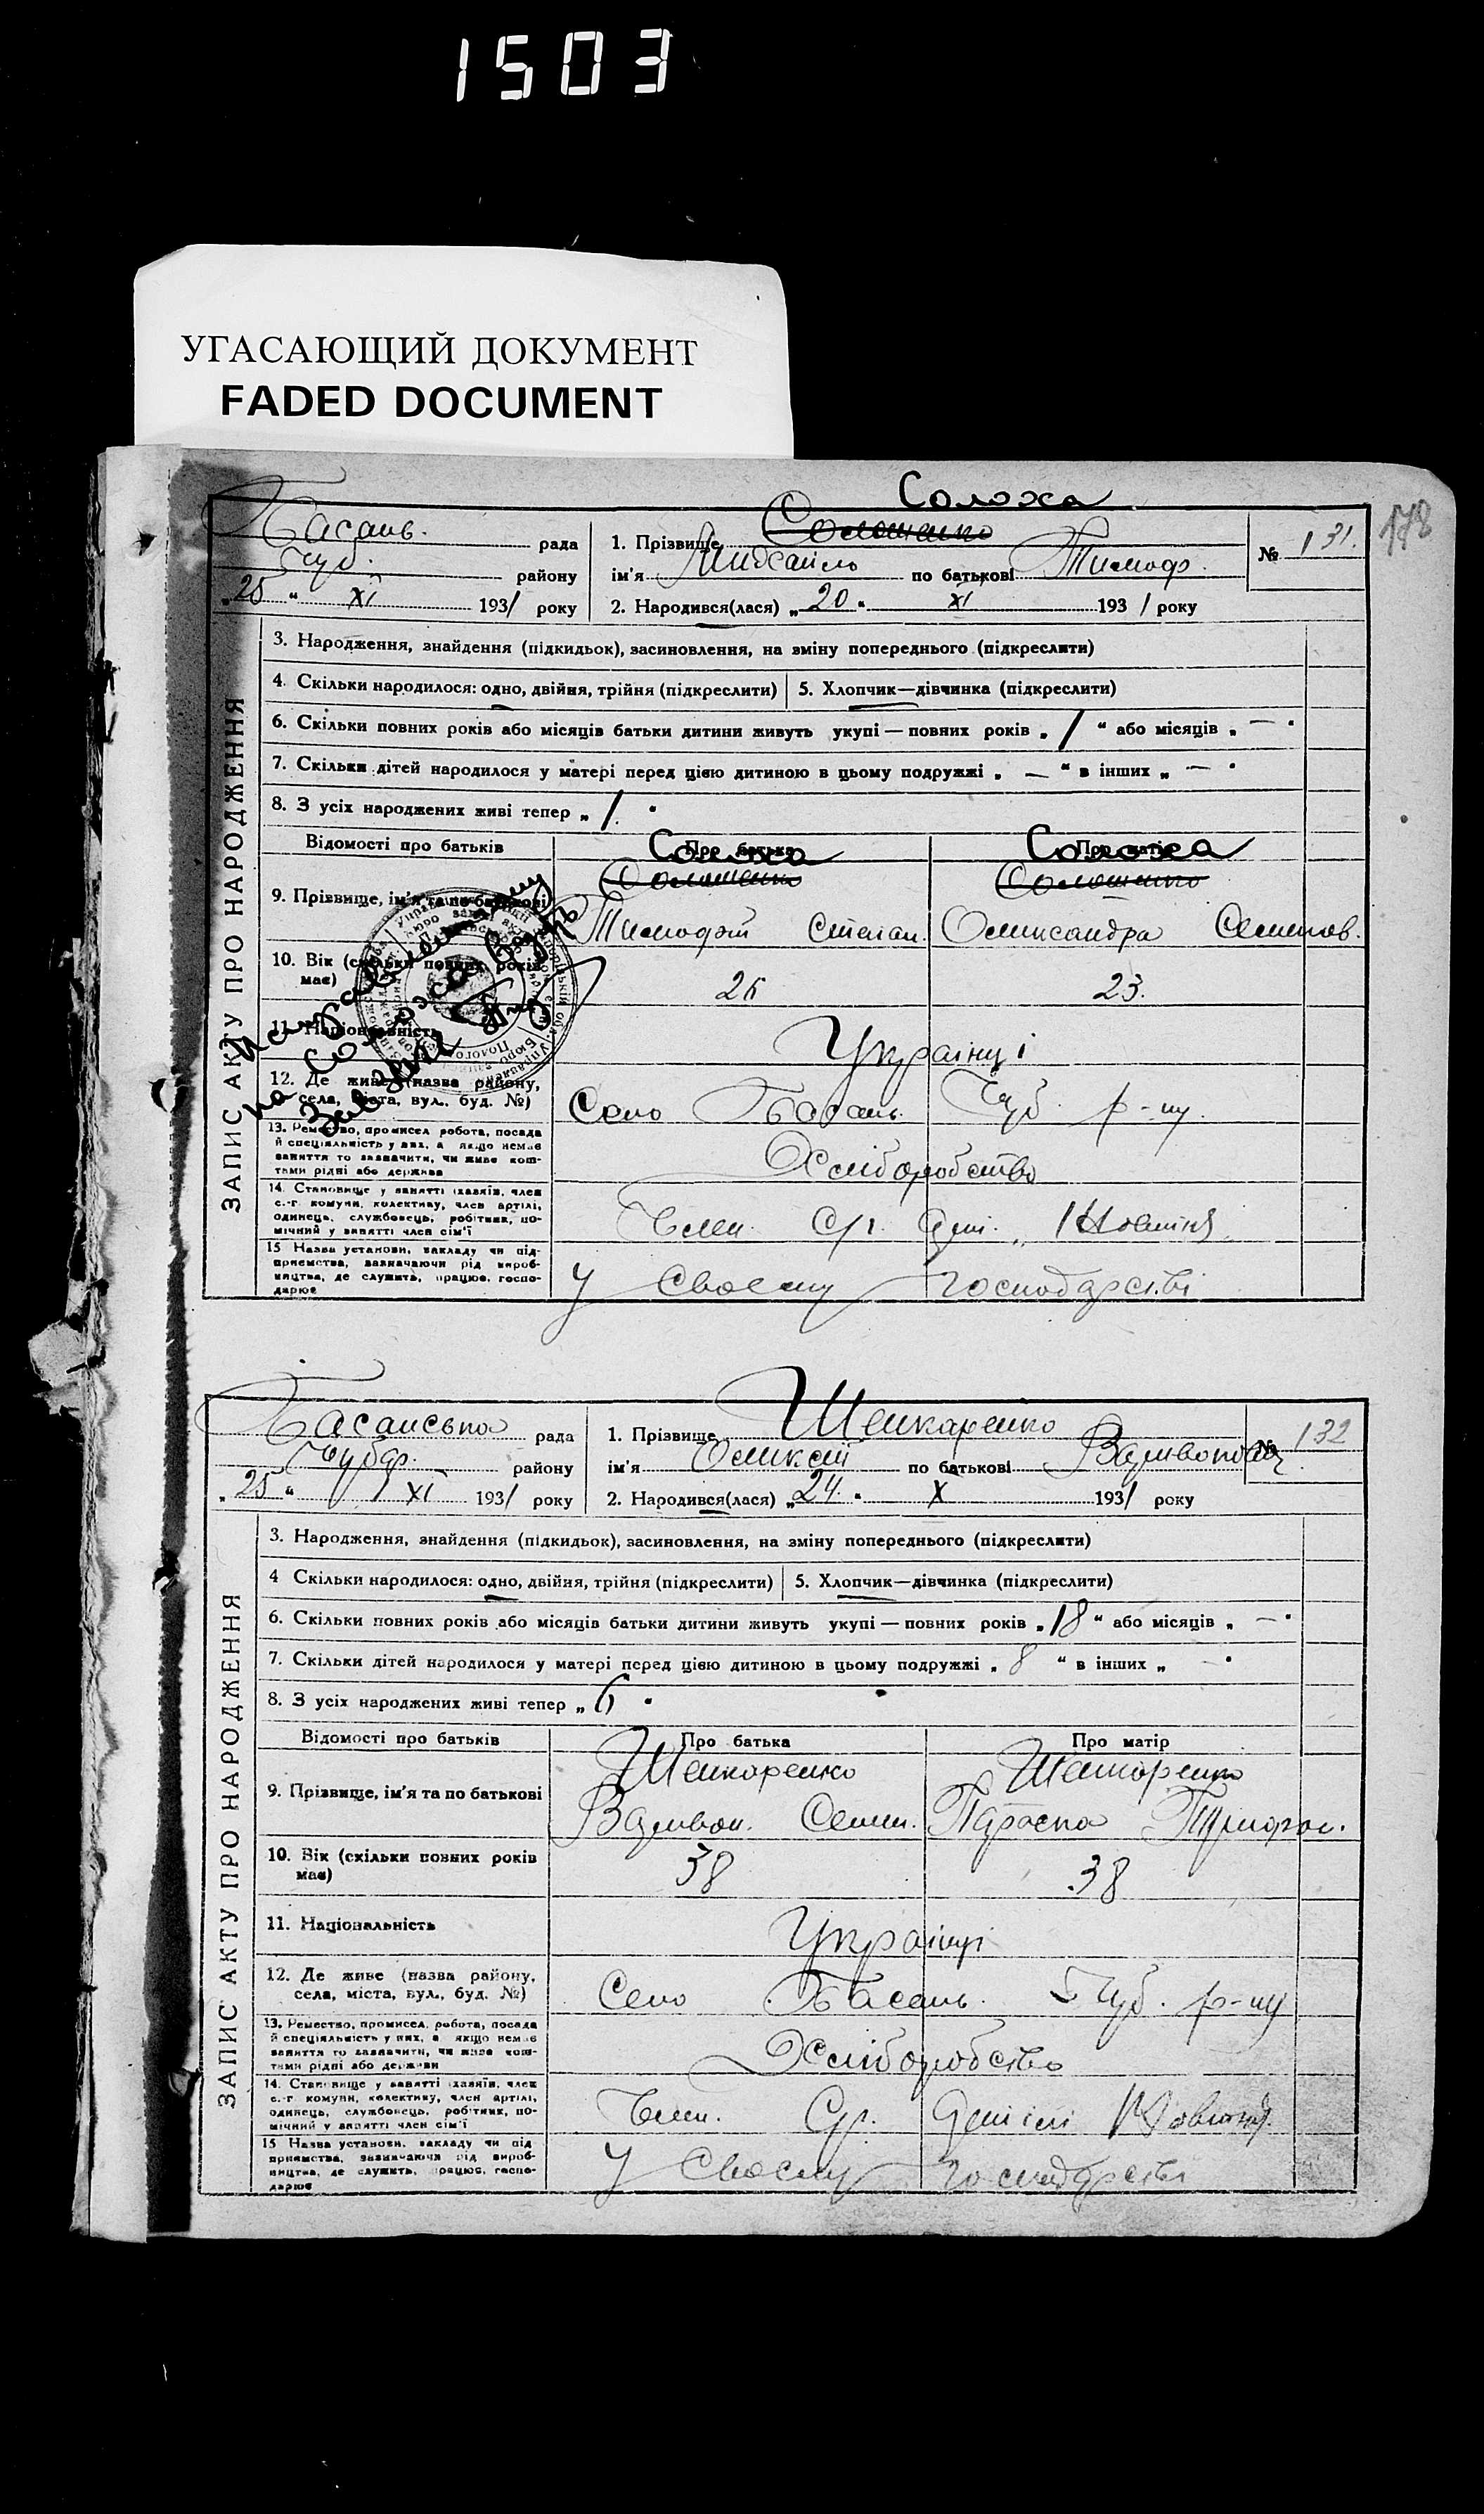 1503
УГАСАЮЩИЙ ДОКУМЕНТ
FADED DOCUMENT
178
Солоха
Басань. рада
Чуб. району
„25“ XI 1931 року
1. Прізвище Солошенко
ім'я Михайло по батькові Тимоф.
2. Народився(лася) „20“ XI 1931 року
№ 131.
ЗАПИС АКТУ ПРО НАРОДЖЕННЯ
3. Народження, знайдення (підкидьок), засиновлення, на зміну попереднього (підкреслити)
4. Скільки народилося: одно, двійня, трійня (підкреслити) 5. Хлопчик—дівчинка (підкреслити)
6. Скільки повних років або місяців батьки дитини живуть укупі — повних років „1“ або місяців „—“
7. Скільки дітей народилося у матері перед цією дитиною в цьому подружжі „—“ в інших „—“
8. З усіх народжених живі тепер „1.“
Відомості про батьків Про батька Про матір
Солоха Солоха
Солошенко Солошенко
9. Прізвище, ім'я та по батькові
Тимофій Степан. Олександра Семенов.
10. Вік (скільки повних років має) 23.
11. Національність Українці
12. Де живе (назва району, села, міста, вул., буд. №) Село Басань. Чуб. р-ну.
13. Ремество, промисел, робота, посада
й спеціальність у них, а якщо немає
заняття то зазначити, чи живе кош-
тами рідні або держави
Хліборобство
14. Становище у занятті (хазяїн, член
с.-г. комуни, колективу, член артілі,
одинець, службовець, робітник, по-
мічний у занятті член сім'ї
Член. С/г.
15 Назва установи, закладу чи під-
приємства, зазначаючи рід вироб-
ництва, де служить, працює, госпо-
дарює
У своєму господарстві
Басанська рада
Чубар. району
„25“ XI 1931 року
1. Прізвище Шенкаренко
ім'я Олексій по батькові
2. Народився(лася) „24.“ X 1931 року
№ 132
ЗАПИС АКТУ ПРО НАРОДЖЕННЯ
3. Народження, знайдення (підкидьок), засиновлення, на зміну попереднього (підкреслити)
4 Скільки народилося: одно, двійня, трійня (підкреслити) 5. Хлопчик—дівчинка (підкреслити)
6. Скільки повних років або місяців батьки дитини живуть укупі — повних років „18“ або місяців „—“
7. Скільки дітей народилося у матері перед цією дитиною в цьому подружжі „8“ в інших „—“
8. З усіх народжених живі тепер „6“
Відомості про батьків Про батька Про матір
Шенкаренко Шенкаренко
9. Прізвище, ім'я та по батькові
Варивон. Семен. Параска
10. Вік (скільки повних років має) 38 38
11. Національність Українці
12. Де живе (назва району, села, міста, вул., буд. №) Село Басань. Чуб. р-ну
13. Ремество, промисел, робота, посада
й спеціальність у них, а якщо немає
заняття то зазначити, чи живе кош-
тами рідні або держави
Хліборобство
14. Становище у занятті (хазяїн, член
с.-г. комуни, колективу, член артілі,
одинець, службовець, робітник, по-
мічний у занятті член сім'ї
Член. С/г.
15 Назва установи, закладу чи під-
приємства, зазначаючи рід вироб-
ництва, де служить, працює, госпо-
дарює
У своєму господарстві